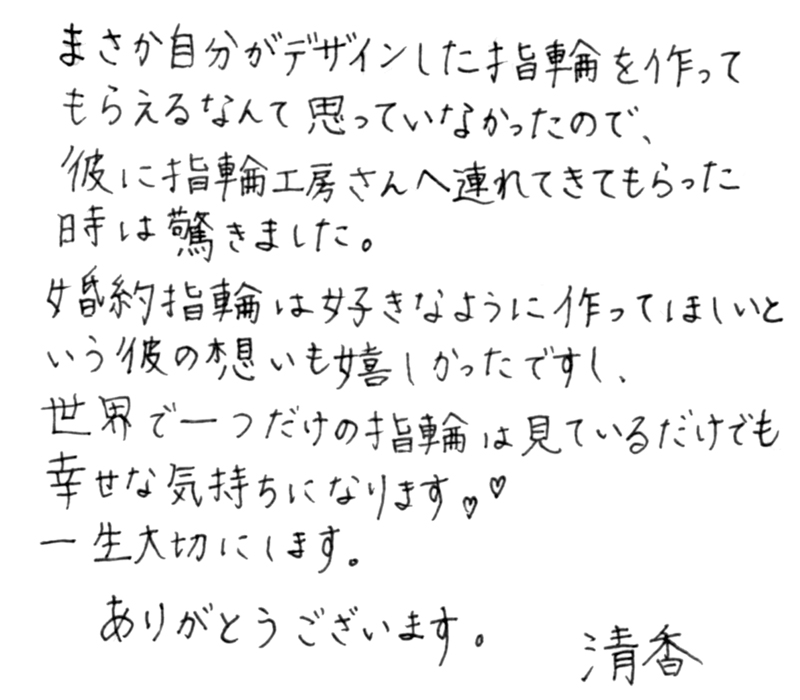 まさか自分がデザインした指輪を作って
もらえるなんて思っていなかったので、
彼に指輪工房さんへ連れてきてもらった
時は驚きました。
婚約指輪は好きなように作ってほしいと
いう彼の想いも嬉しかったですし、
世界で一つだけの指輪は見ているだけでも
幸せな気持ちになります。♡♡
一生大切にします。
ありがとうございます。
清香